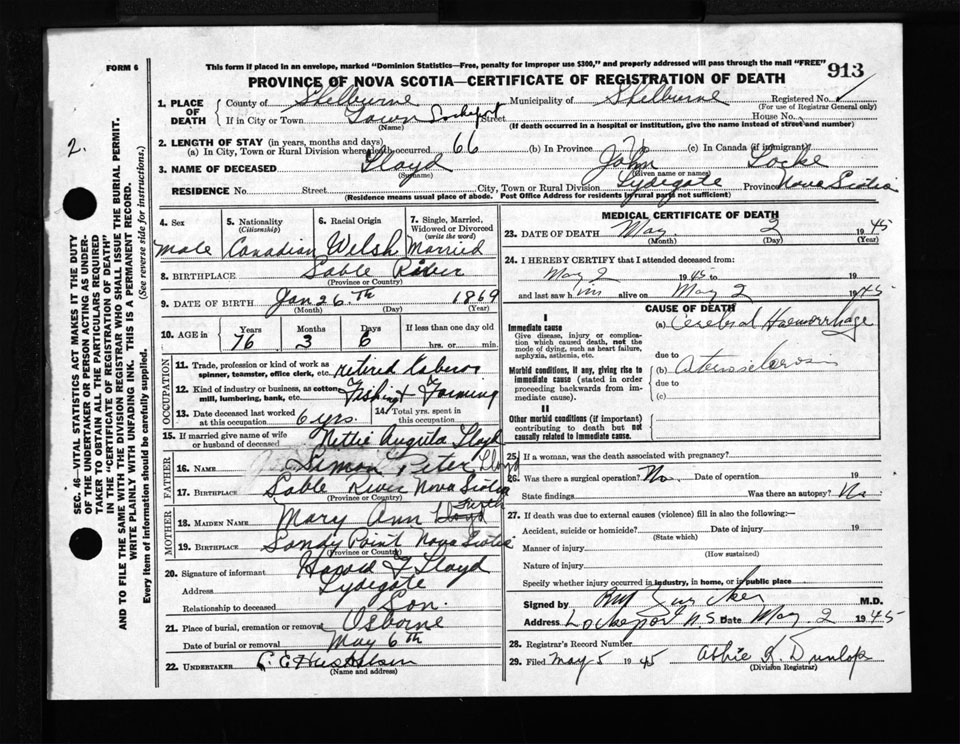 FORM 6
This form if placed in an envelope, marked "Dominion Statistics—Free, penalty for improper use $300," and properly addressed will pass through the mail "FREE"
913
PROVINCE OF NOVA SCOTIA—CERTIFICATE OF REGISTRATION OF DEATH
1. PLACE OF DEATH
County of Shelburne Municipality of Shelburne Registered No.
(For use of Registrar General only)
If in City or Town Town Lockeport Street House No.
(Name) (If death occurred in a hospital or institution, give the name instead of street and number)
2. LENGTH OF STAY (in years, months and days)
(a) In City, Town or Rural Division where death occurred 66 (b) In Province (c) In Canada (if immigrant)
3. NAME OF DECEASED Lloyd John Locke
(Surname) (Given name or names)
RESIDENCE No. Street City, Town or Rural Division Lydgate Province Nova Scotia
(Residence means usual place of abode. Post Office Address for residents in rural parts not sufficient)
4. Sex
male
5. Nationality
(Citizenship)
Canadian
6. Racial Origin
Welsh
7. Single, Married, Widowed or Divorced
(write the word)
Married
8. BIRTHPLACE Sable River
(Province or Country)
9. DATE OF BIRTH Jan 26th 1869
(Month) (Day) (Year)
10. AGE in Years Months Days If less than one day old
76 3 6 hrs. or min.
OCCUPATION
11. Trade, profession or kind of work as spinner, teamster, office clerk, etc. retired
12. Kind of industry or business, as cotton mill, lumbering, bank, etc. Fishing & Farming
13. Date deceased last worked at this occupation 6 yrs.
14. Total yrs. spent in this occupation
15. If married give name of wife or husband of deceased Nettie Lloyd
FATHER
16. NAME Simon Peter Lloyd
17. BIRTHPLACE Sable River Nova Scotia
(Province or Country)
MOTHER
18. MAIDEN NAME Mary Ann Lloyd
19. BIRTHPLACE Sandy Point Nova Scotia
(Province or Country)
20. Signature of informant Harold F Lloyd
Address Lydgate
Relationship to deceased Son.
21. Place of burial, cremation or removal Osborne
Date of burial or removal May 6th
22. UNDERTAKER
(Name and address)
MEDICAL CERTIFICATE OF DEATH
23. DATE OF DEATH May 2 1945
(Month) (Day) (Year)
24. I HEREBY CERTIFY that I attended deceased from:
May 2 1945 to 19
and last saw him alive on May 2 1945
CAUSE OF DEATH
I
Immediate cause
Give disease, injury or complication which caused death, not the mode of dying, such as heart failure, asphyxia, asthenia, etc.
(a) Cerebral Haemorrhage
due to
Morbid conditions, if any, giving rise to immediate cause (stated in order proceeding backwards from immediate cause).
(b) arteriosclerosis
due to
(c)
II
Other morbid conditions (if important) contributing to death but not causally related to immediate cause.
25. If a woman, was the death associated with pregnancy?
26. Was there a surgical operation? No. Date of operation 19
State findings Was there an autopsy? No
27. If death was due to external causes (violence) fill in also the following:—
Accident, suicide or homicide? Date of injury 19
(State which)
Manner of injury
(How sustained)
Nature of injury
Specify whether injury occurred in industry, in home, or in public place
Signed by M.D.
Address Lockeport N.S. Date May 2 1945
28. Registrar's Record Number
29. Filed May 5 1945 K. Dunlop
(Division Registrar)
2.
SEC. 46—VITAL STATISTICS ACT MAKES IT THE DUTY OF THE UNDERTAKER OR PERSON ACTING AS UNDERTAKER TO OBTAIN ALL THE PARTICULARS REQUIRED IN THE "CERTIFICATE OF REGISTRATION OF DEATH" AND TO FILE THE SAME WITH THE DIVISION REGISTRAR WHO SHALL ISSUE THE BURIAL PERMIT.
WRITE PLAINLY WITH UNFADING INK. THIS IS A PERMANENT RECORD.
Every item of information should be carefully supplied. (See reverse side for instructions.)